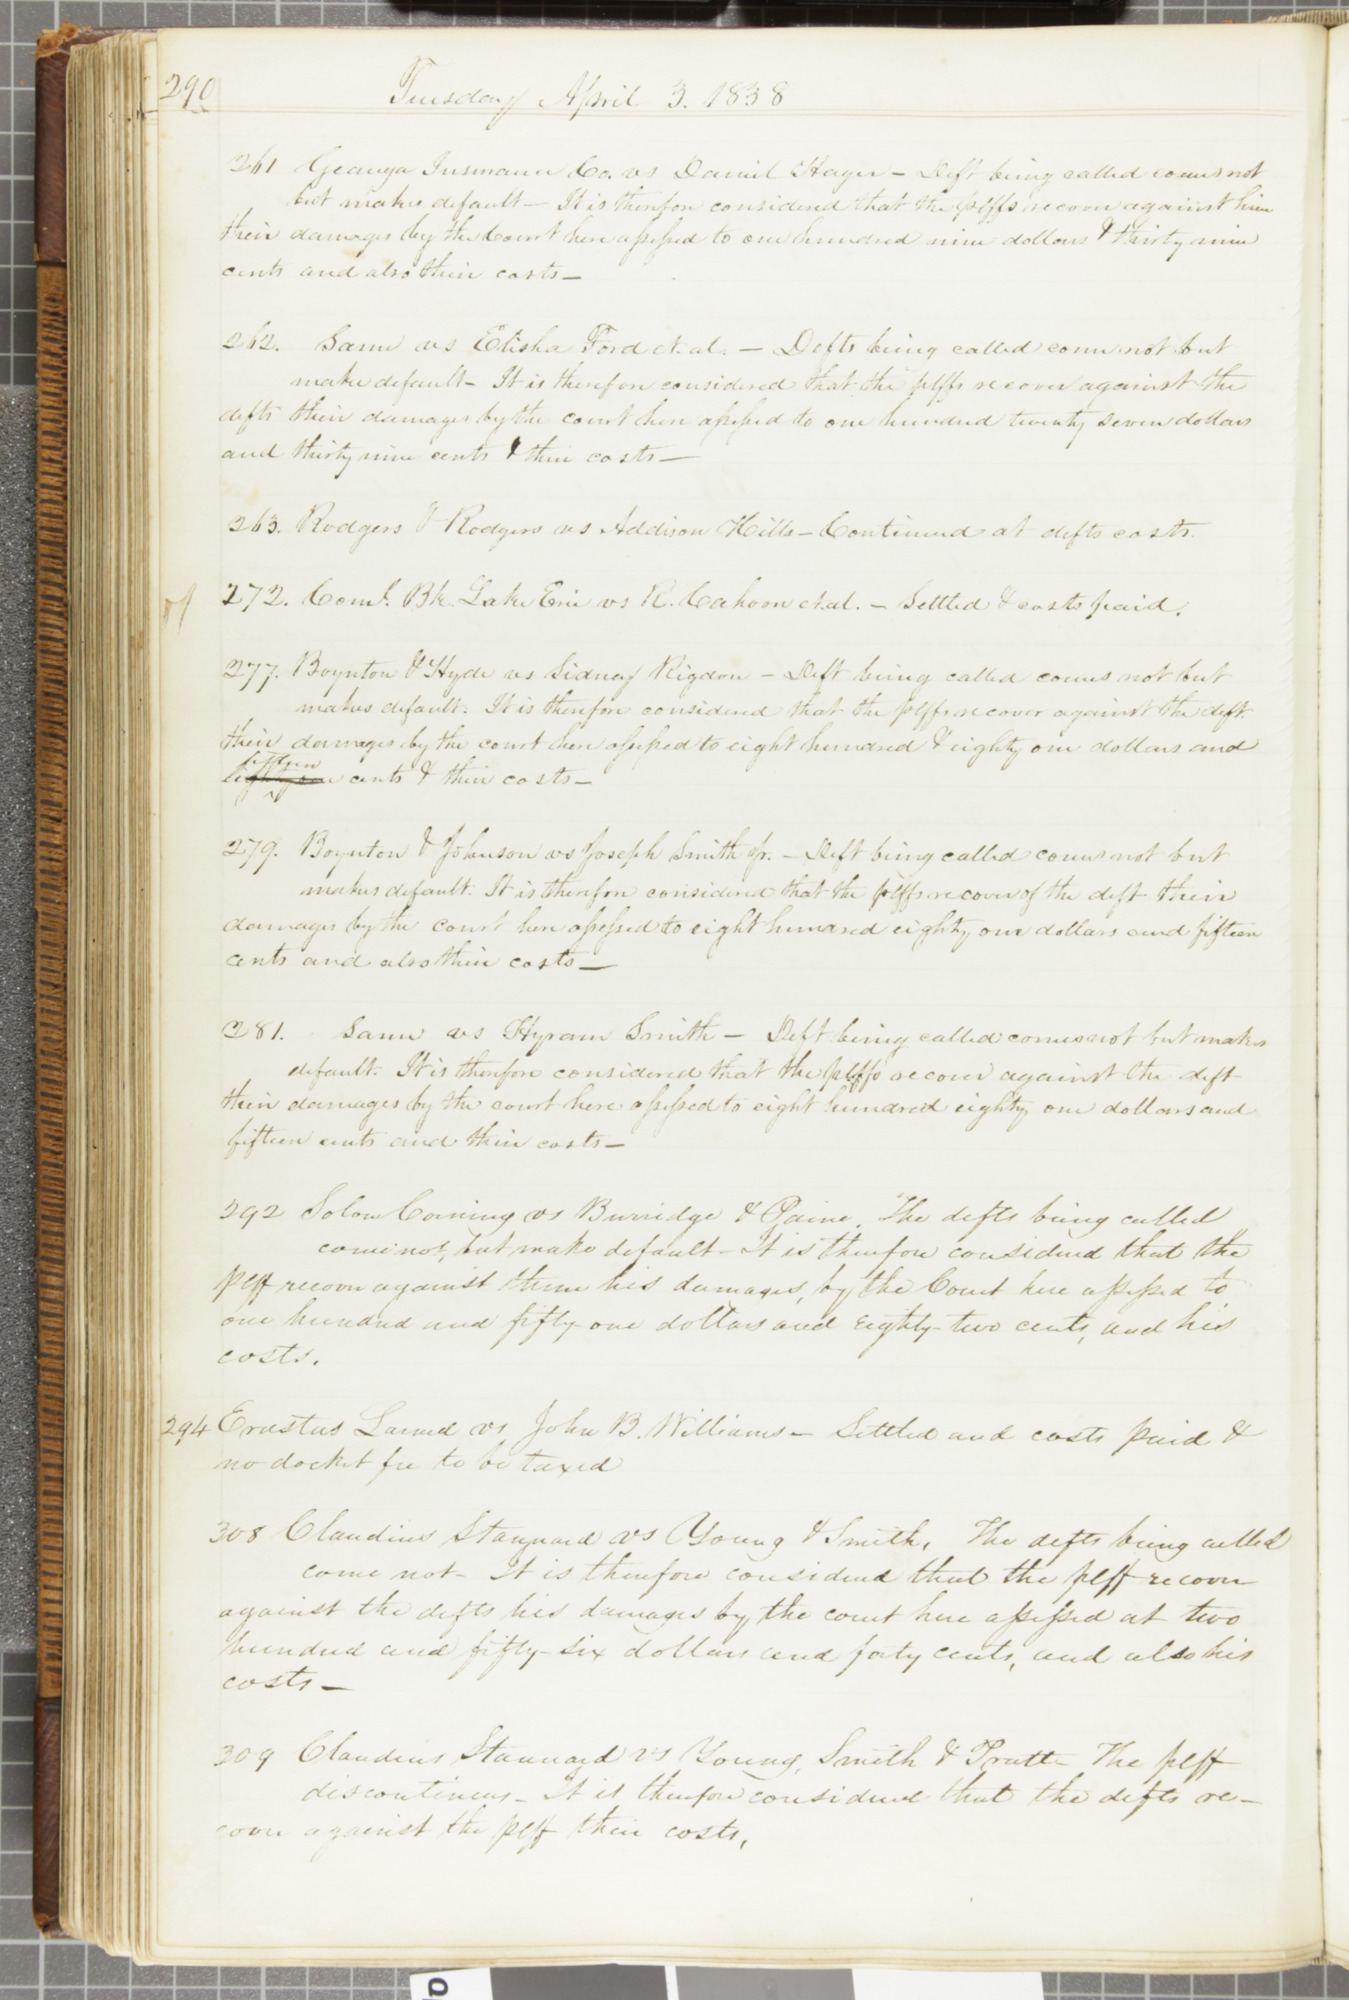 290
Tuesday April 3. 1838
261 Geauga Insurance Co. vs Daniel Hager – Deft being called comes not
but makes default – It is therefore considered that the plffs recover against him
their damages by the Court here assessed to one hundred nine dollars & thirty nine
cents and also their costs –
262. Same vs Elisha Ford et. al. – Defts being called come not but
make default – It is therefore considered that the plffs recover against the
defts their damages by the court here assessed to one hundred twenty seven dollars
and thirty nine cents & their costs –
263. Rodgers & Rodgers vs Addison Hills – Continued at defts costs.
272. Coml. Bk. Lake Erie vs R. Cahoon et. al. – Settled & costs paid.
277. Boynton & Hyde vs Sidney Rigdon – Deft being called comes not but
makes default. It is therefore considered that the plffs recover against the deft
their damages by the court here assessed to eight hundred & eighty one dollars and
fifteen
eighty one cents & their costs –
279. Boynton & Johnson vs Joseph Smith Jr. – Deft being called comes not but
makes default. It is therefore considered that the plffs recover of the deft their
damages by the court here assessed to eight hundred eighty one dollars and fifteen
cents and also their costs –
281. Same vs Hyram Smith – Deft being called comes not but makes
default. It is therefore considered that the plffs recover against the deft
their damages by the court here assessed to eight hundred eighty one dollars and
fifteen cents and their costs –
292 Solon Corning vs Burridge & Paine. The defts being called
come not, but make default – It is therefore considered that the
plff recover against them his damages, by the Court here assessed to
one hundred and fifty-one dollars and eighty-two cents, and his
costs.
294 Erastus Larned vs John B. Williams – Settled and costs paid &
no docket fee to be taxed
308 Claudius Stannard vs Young & Smith. The defts being called
come not – It is therefore considered that the plff recover
against the defts his damages by the court here assessed at two
hundred and fifty-six dollars and forty cents, and also his
costs –
309 Claudius Stannard vs Young, Smith & Pratt – The plff
discontinues – It is therefore considered that the defts re-
cover against the plff their costs.